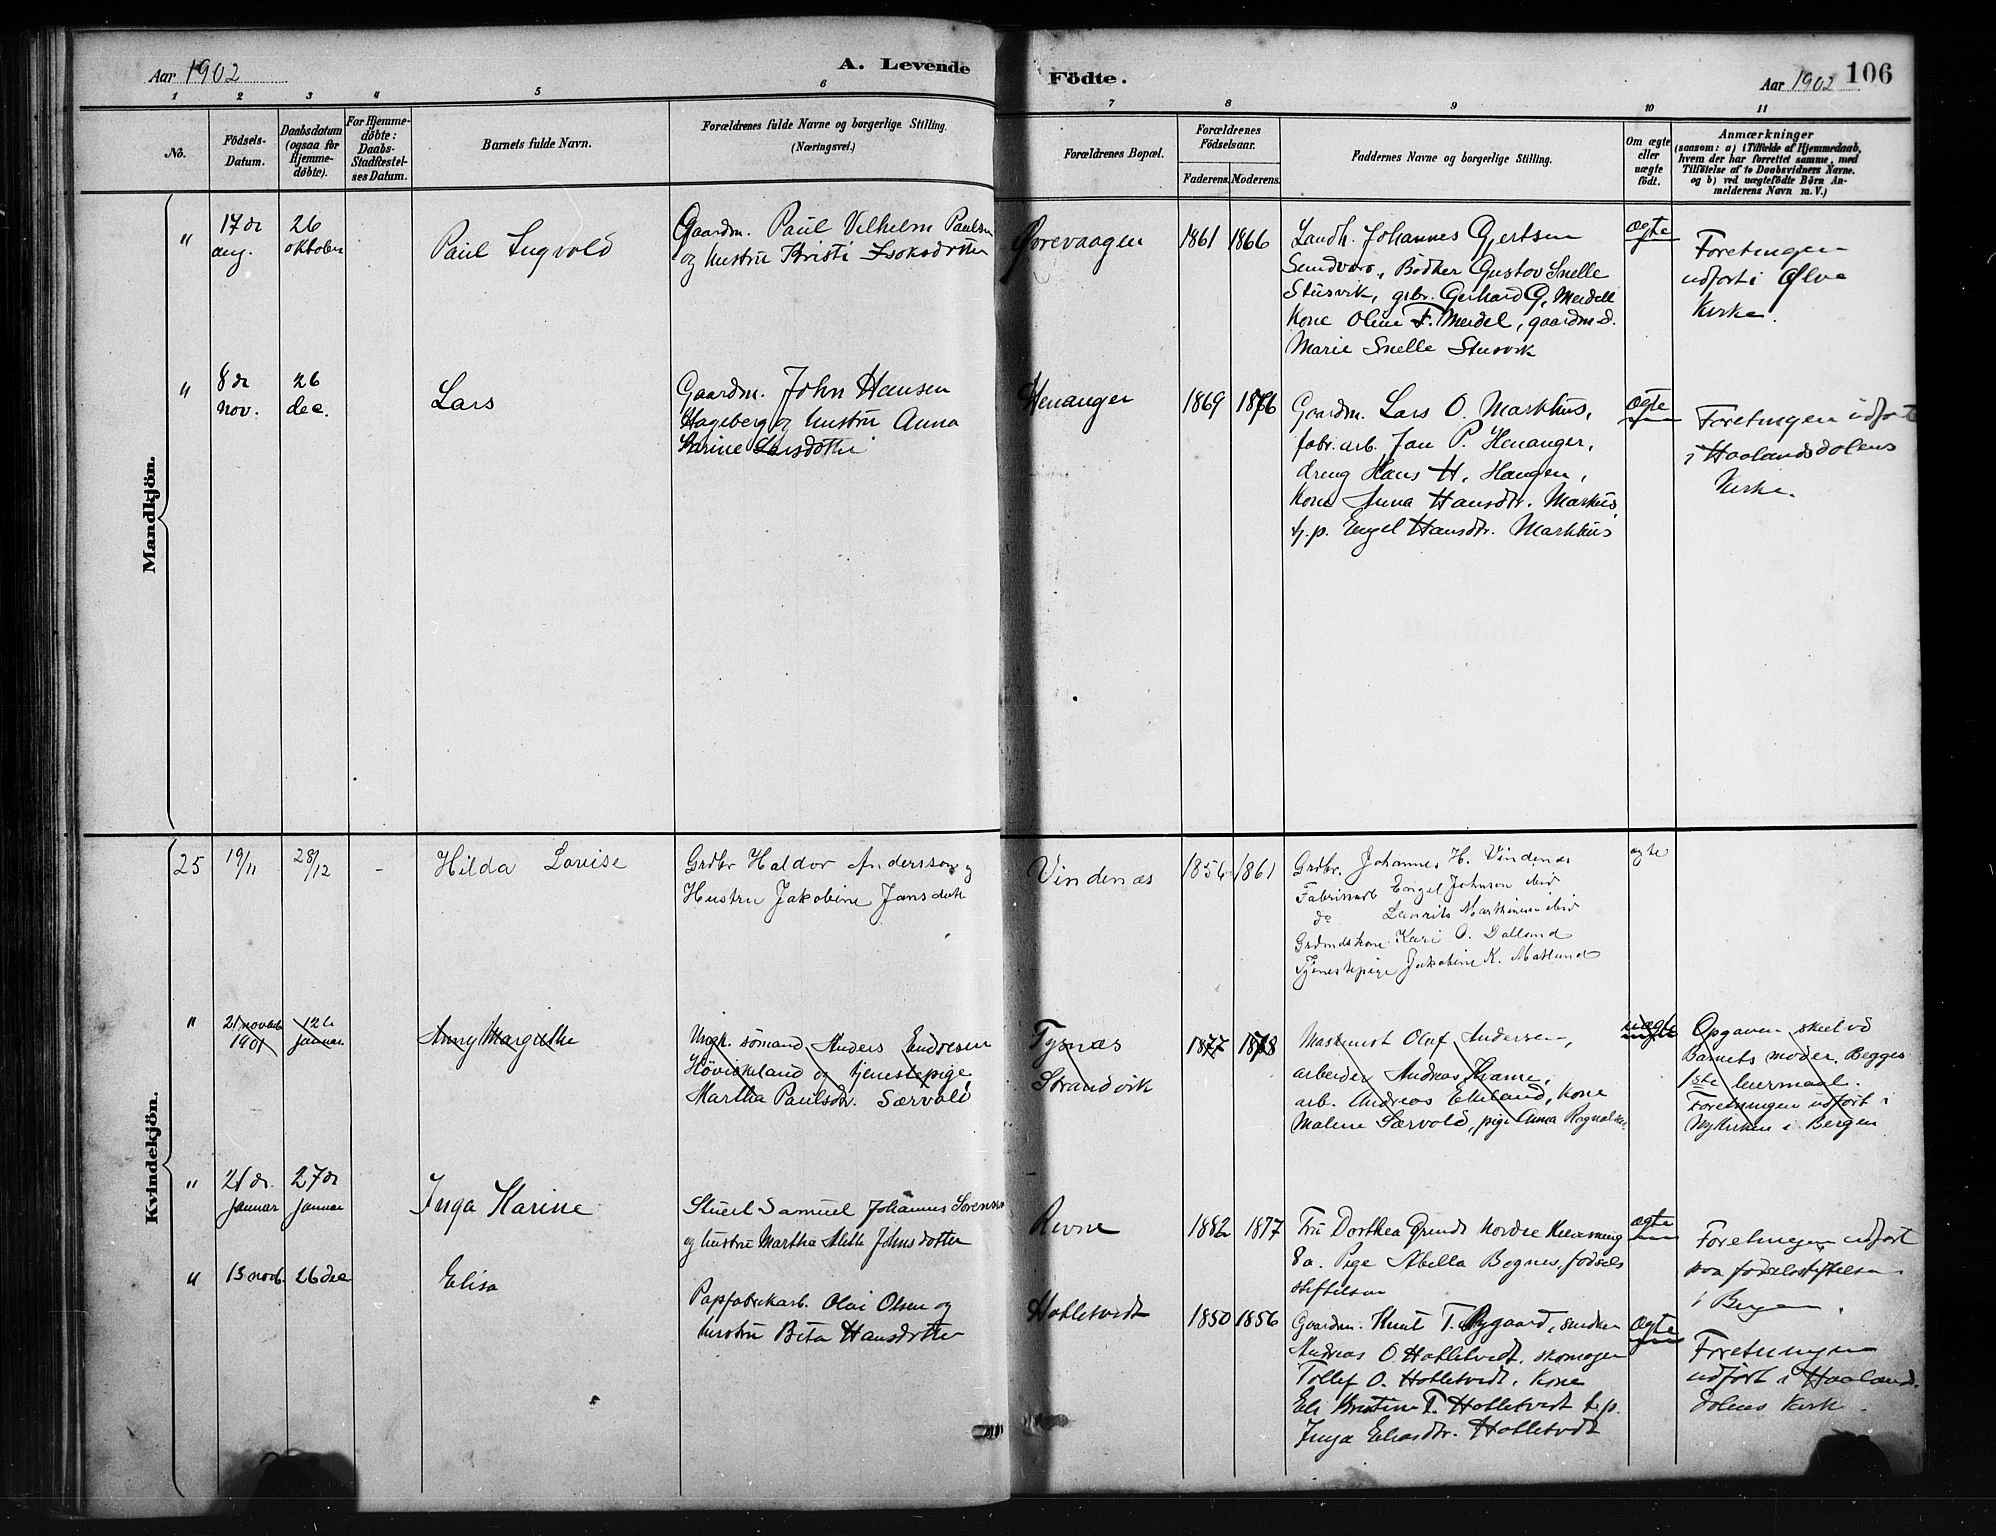 Aar 1902
A. Levende
Födte.
Aar 1902
106
1 2 3 4 5 6 7 8 9 10 11
No.
Födsels-
Datum.
Daabsdatum
(ogsaa for
Hjemme-
döbte).
For Hjemme-
döbte:
Daabs-
Stadfæstel-
ses Datum.
Barnets fulde Navn.
Forældrenes fulde Navne og borgerlige Stilling.
(Næringsvei.)
Forældrenes Bopæl.
Forældrenes
Födselsaar.
Faderens. Moderens.
Faddernes Navne og borgerlige Stilling.
Om ægte
eller
uægte
födt.
Anmærkninger
(saasom: a) i Tilfælde af Hjemmedaab,
hvem der har forrettet samme, med
Tilföielse af to Daabsvidners Navne.
og b) ved uægtefödte Börn An-
melderens Navn m. V.)
Mandkjön.
"
17de
aug.
26
oktober
Paul Ingvold
Gaardm. Paul Vilhelm Paulsen
og hustru Kristi Isaksdotter
Ørevaagen
1861 1866
Landh. Johannes Gjertsen
Sundvoro, Bødker Gustov Snelle
Stusvik, grbr. Gerhard G. Merdell
Kone Oline F. Merdel, gaardm d.
Marie Snelle Stusvik
Ægte
Foretningen
udført i Ølve
Kirke.
"
8de
nov.
26
dec.
Lars
Gaardm. John Hansen
Hageberg og hustru Anna
Karine Larsdotter
Henanger
1869 1876
Gaardm. Lars O. Markhus,
fabr. arb. Jan P. Henanger,
dreng Hans H. Haugen,
Kone Anna Hansdtr. Markus,
tj.p. Engel Hansdtr. Markhus
Ægte
Foretningen udført
i Haalandsdalens
Kirke.
Kvindekjön.
25
19/11
28/12
-
Hilda Lovise
Grdbr Haldor Anderssen og
Hustru Jakobine Jansdatt
Vindenæs
1854 1861
Grdbr. Johannes H. Vindenæs
Fabrikarb Engel Johnson ibid
do Laurits Marthinsen ibid
Grdmdskone Kari O. Dalland
Tjenestepige Jakobine K. Matland
ægte
"
21 novbr
1901
12te
januar
Anny Margrethe
Ungk. sömand Anders Endresen
Hövikeland og tjenestepige
Martha Paulsdtr. Særvold
Tysnæs
Strandvik
1877 1878
Maskinist Olaf Andersen,
arbeider Andreas Krame,
arb. Andreas Ekeland, Kone
Malene Særvold, pige Anna
uægte
Opgaven skeet ved
Barnets moder. Begges
1ste leiermaal.
Foretningen udført i
Nykirken i Bergen
"
21de.
januar
27de
januar
Inga Karine
Stuert Samuel Johannes Sørensen
og hustru Martha Alette Johnsdotter
Revne
1882 1877
Fru Dorthea Grund Nordre
8a. Pige Abella Bognes, fødsels
stiftelsen
Ægte
Foretningen udført
paa fødselsstiftelsen
i Bergen.
"
13 novb. 26 dec
Elisa
Papfabrikarb. Olai Olsen og
hustru Brita Hansdotter
Holletvedt
1850 1856
Gaardm. Knut T. Rygaard, snedker
Andreas O. Holletvedt, skomager
Tollef O. Holletvedt, Kone
Eli Kristine T. Holletvedt t.p.
Inga Eliasdtr. Holletvedt
Ægte
Foretningen
udført i Haalands-
dalens Kirk.